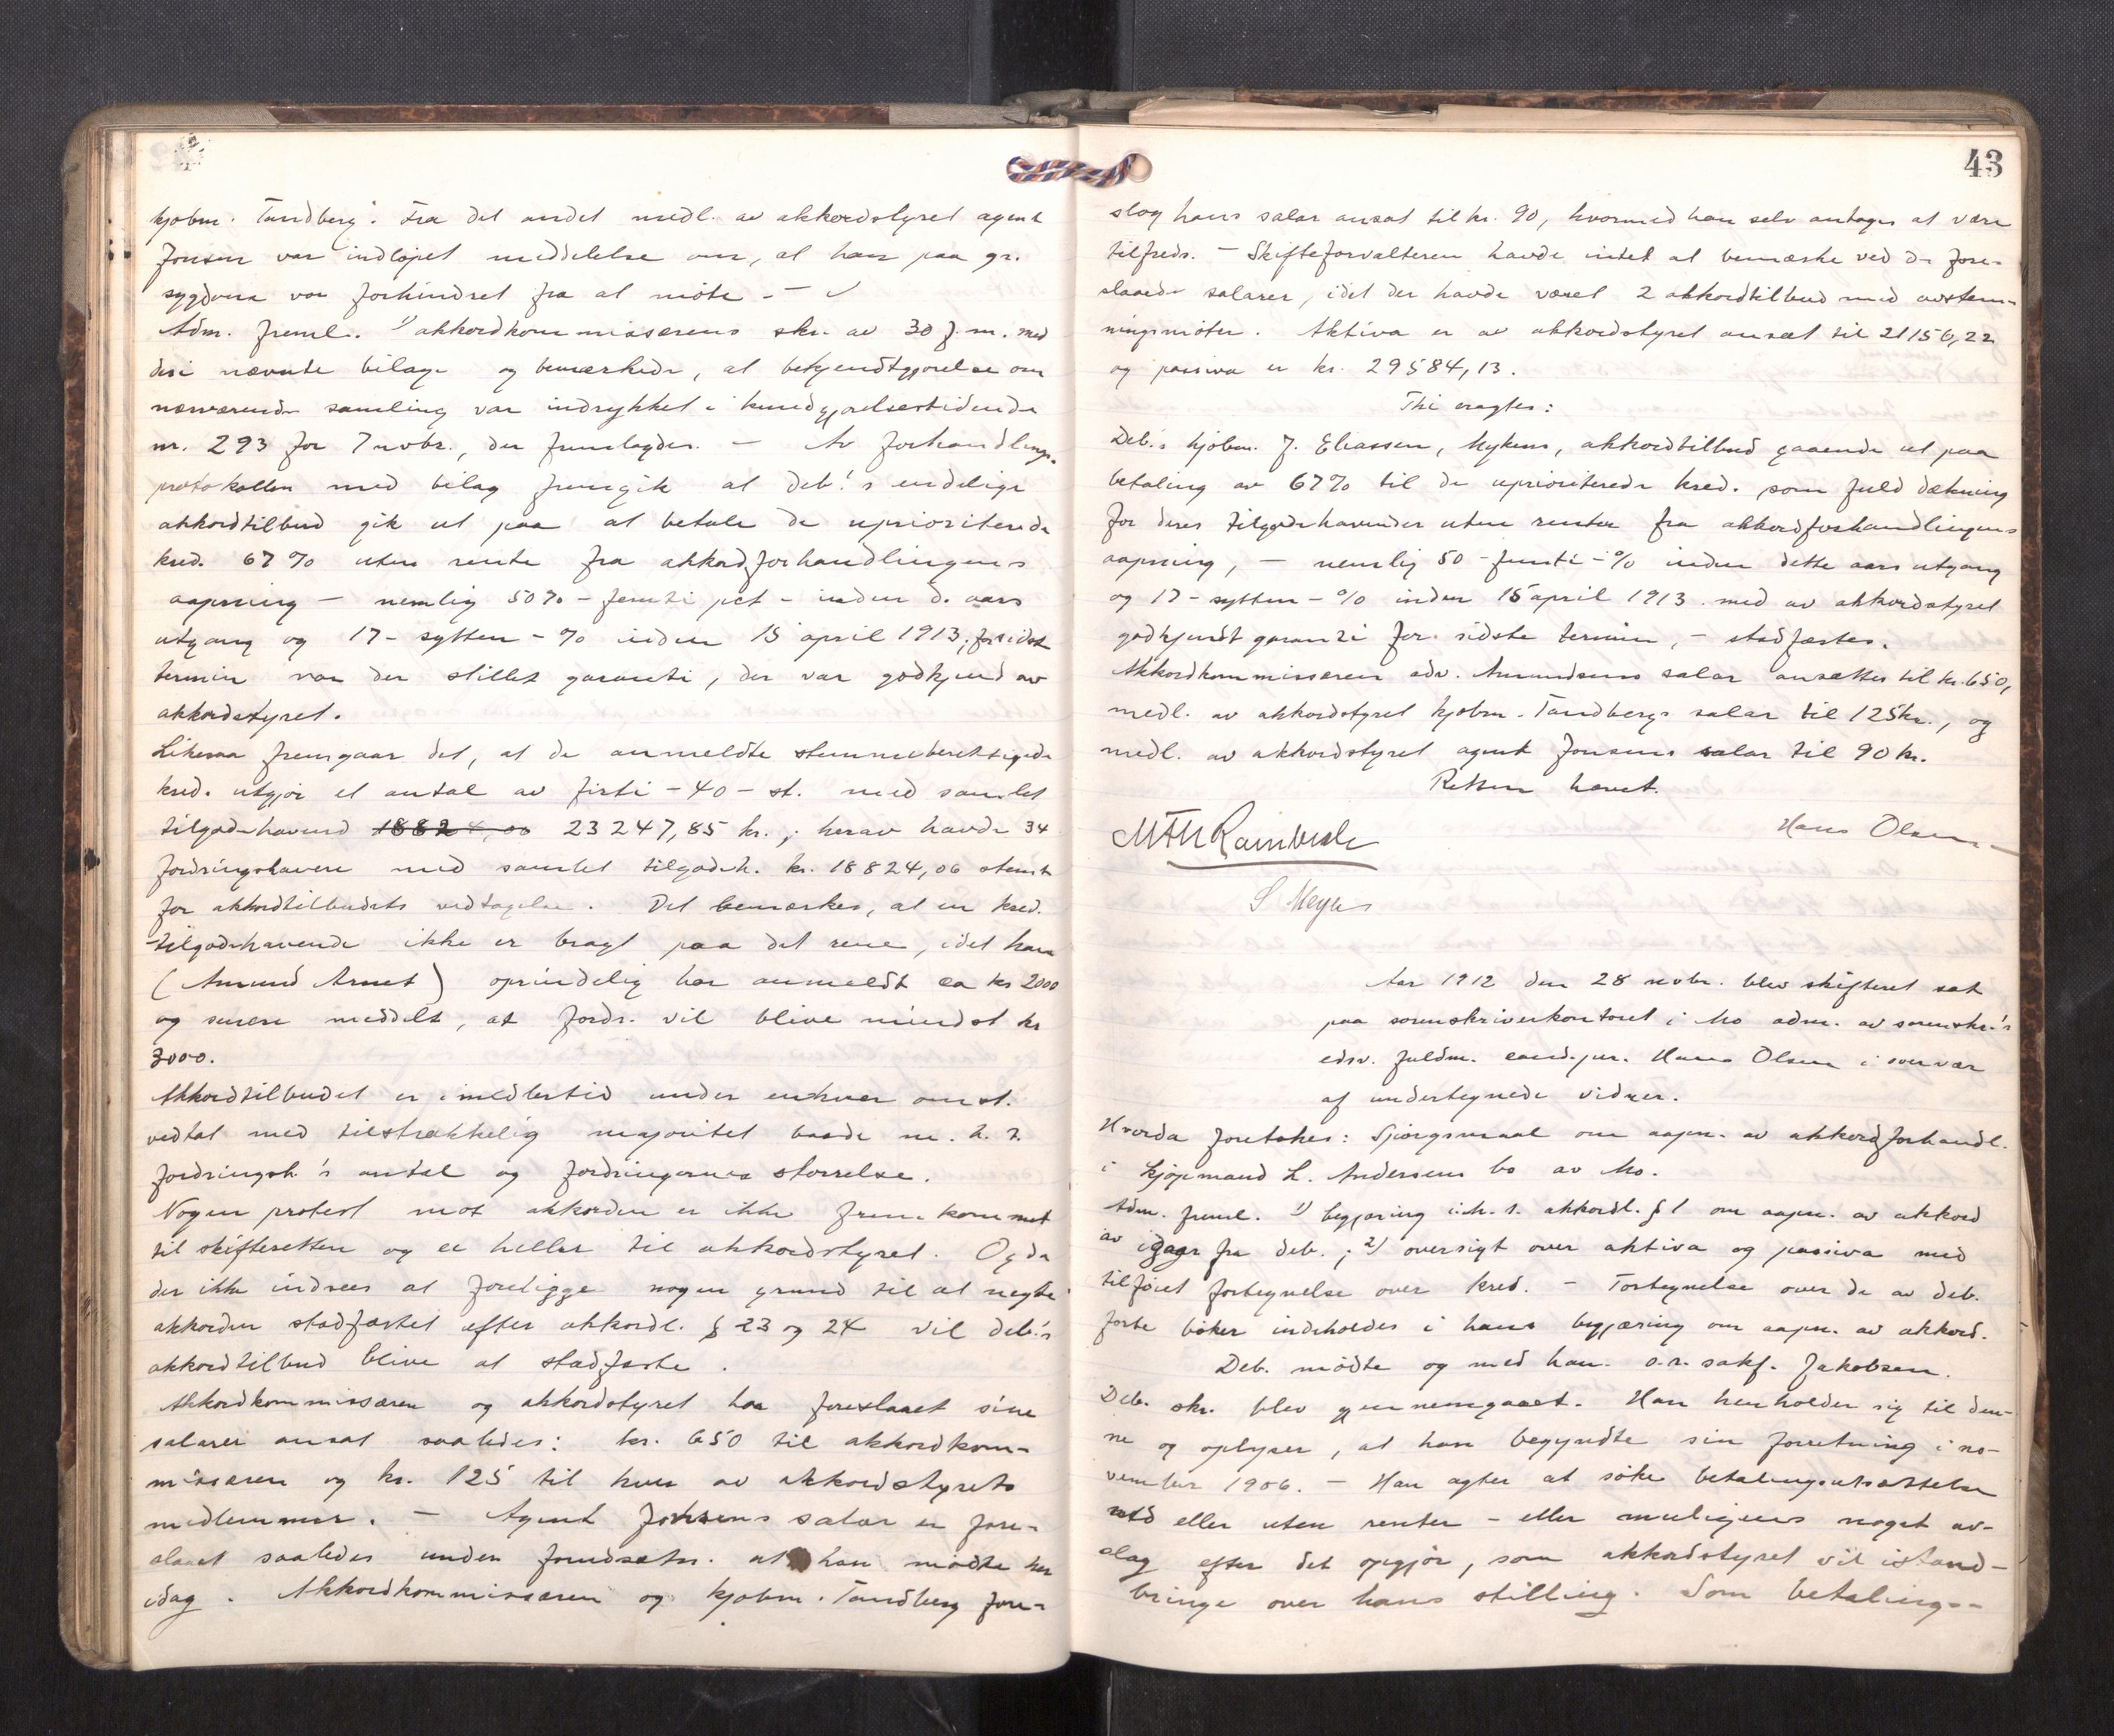 kjøbm. Tandberg. Fra det andet medl. av akkordstyret agent
Jonsen var indløpet meddelelse om, at han paa gr.
sygdom var forhindret fra at møte. –
Adm. freml. 1) akkordkommissærens skr. av 30 f.m. med
deri nævnte bilage og bemærkede, at bekjendtgjørelse om
nærværende samling var indrykket i kundgjørelsestidende
nr. 293 for 7 novbr., der fremlagdes. – Av forhandlings-
protokollen med bilag fremgik at deb.'s endelige
akkordtilbud gik ut paa at betale de uprioriterede
kred. 67 % uten rente fra akkordforhandlingens
aapning – nemlig 50 % – femti pct – inden d. aars
utgang og 17 – sytten – % inden 15 april 1913; for sidste
termin var der stillet garanti, der var godkjend av
akkordstyret.
Likesaa fremgaar det, at de anmeldte stemmeberettigede
kred. utgjør et antal av firti – 40 – st. med samlet
tilgodehavend 18824,06 23247,85 kr.; herav havde 34
fordringshavere med samlet tilgodeh. kr. 18824,06 stemt
for akkordtilbudets vedtagelse. Det bemærkes, at en kred.
tilgodehavende ikke er bragt paa det rene, idet han
(Amund Arnet) oprindelig har anmeldt ca kr 2000
og senere meddelt, at fordr. vil blive mindst kr
3000.
Akkordtilbudet er imidlertid under enhver omst.
vedtat med tilstrækkelig majoritet baade m. h. t.
fordringsh.'s antal og fordringernes størrelse.
Nogen protest mot akkorden er ikke fremkommet
til skifteretten og ei heller til akkordstyret. Og da
der ikke indsees at foreligge nogen grund til at negte
akkorden stadfæstet efter akkordl. § 23 og 24 vil deb.'s
akkordtilbud blive at stadfæste.
Akkordkommissæren og akkordstyret har foreslaaet sine
salærer ansat saaledes: kr. 650 til akkordkom-
missæren og kr. 125 til hver av akkordstyrets
medlemmer. – Agent Jonsens salær er fore-
slaaet saaledes under forudsætn. at han mødte her
idag. Akkordkommissæren og kjøbm. Tandberg fore-
43
slog hans salær ansat til kr. 90, hvormed han selv antages at være
tilfreds. – Skifteforvalteren havde intet at bemærke ved de fore-
slaaede salærer, idet der havde været 2 akkordtilbud med avstem-
ningsmøter. Aktiva er av akkordstyret ansat til 21156,22
og passiva er kr. 29584,13.
Thi eragtes:
Deb.'s kjøbm. J. Eliassen, Mykens, akkordtilbud gaaende ut paa
betaling av 67% til de uprioriterede kred. som fuld dækning
for deres tilgodehavender uten renter fra akkordforhandlingens
aapning, – nemlig 50 – femti – % inden dette aars utgang
og 17 – sytten – % inden 15 april 1913 med av akkordstyret
godkjendt garanti for sidste termin, – stadfæstes.
Akkordkommissæren adv. Amundsens salær ansættes til kr. 650,
medl. av akkordstyret kjøbm. Tandbergs salær til 125 kr., og
medl. av akkordstyret agent Jonsens salær til 90 kr.
Retten hævet.
Hans Olsen
S Meyer
Aar 1912 den 28 novbr. blev skifteret sat
paa sorenskriverkontoret i Mo adm. av sorenskr.'s
edsv. fuldm. cand. jur. Hans Olsen i overvær
af undertegnede vidner.
Hvorda foretokes: Spørgsmaal om aapn. av akkordforhandl.
i kjøpmand L. Andersens bo av Mo.
Adm. freml. 1) begjæring i.h.t. akkordl. § 1 om aapn. av akkord
av idag fra deb.; 2) oversigt over aktiva og passiva med
tilføiet fortegnelse over kred. – Fortegnelse over de av deb.
førte bøker indeholdes i hans begjæring om aapn. av akkord.
Deb. mødte og med han o.r. sakf. Jakobsen.
Deb. skr. blev gjennemgaaet. Han henholder sig til den-
ne og oplyser, at han begyndte sin forretning i no-
vember 1906. – Han agter at søke betalingsutsættelse
med eller uten renter – eller muligens noget av-
slag efter det opgjør, som akkordstyret vil istand-
bringe over hans stilling. Som betalings-